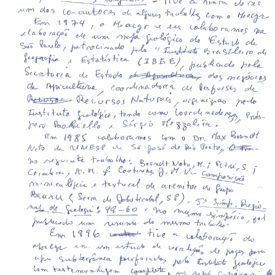 tive a honra de ser
um dos co-autores de alguns trabalhos com o Moacyr
Em 1974, o Moacyr e eu colaboramos na
elaboração de um mapa geológico do Estado de
São Paulo, patrocinado pelo Instituto Brasileiro de
Geografia e Estatística (IBGE), publicado pela
Secretaria de Estado dos Negócios
da Agricultura, Coordenadoria de Pesquisa de
Recursos Naturais, organizado pelo
Instituto Geológico, tendo como Coordenadores,
e Sérgio
Em 1985 colaboramos com o Dr. Max Brandt
Neto da UNESP de São José do Rio Preto,
no seguinte trabalho: Brandt Neto, M.; Petri, S.;
Coimbra, A. M. & Coutinho, J. M. V. - Composição
mineralógica e textural de arenitos do Grupo
Bauru (Serra de , SP). 5º Simp. Regio-
nal de Geologia: 49-60. no mesmo simpósio, foi
publicado um resumo do mesmo trabalho
Em 1996 tive a colaboração do
Moacyr em um estudo de
perfurados, pelo Instituto Geológico
com testemunhagem completa,